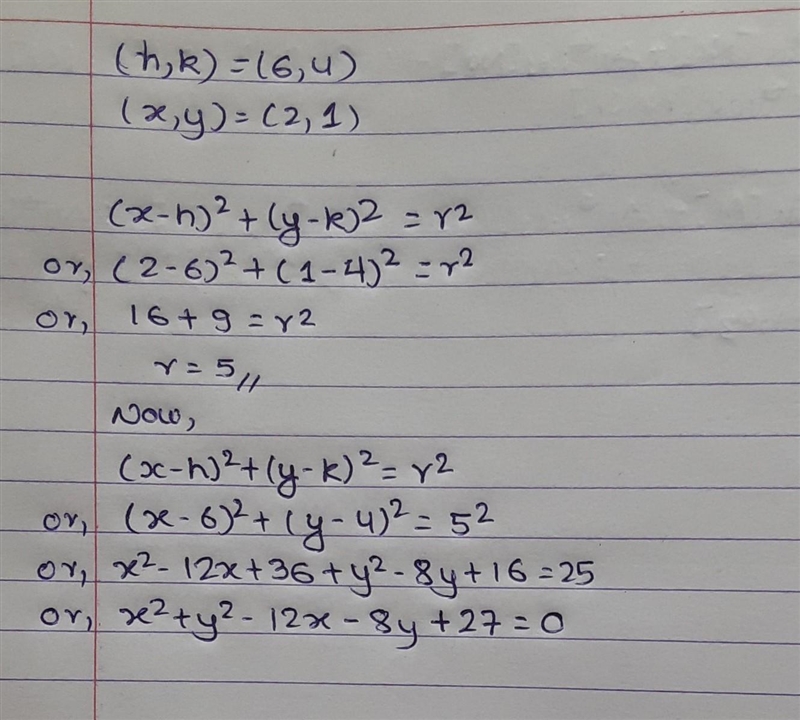 (h,k)=(6,4)
(x,y)=(2,1)
(x-h)²+(y-k)²=r²
or, (2-6)²+(1-4)²=r²
or, 16+9=r²
r=5,,
Now,
(x-h)²+(y-k)²=r²
or, (x-6)²+(y-4)²=5²
or, x²-12x+36+y²-8y+16=25
or, x²+y²-12x-8y+27=0